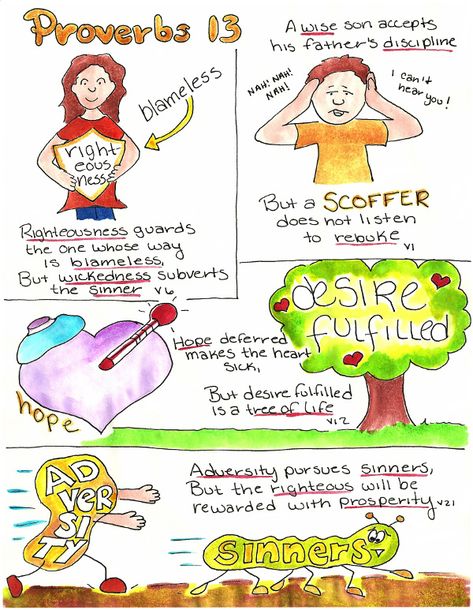 Proverbs 13
blameless
right-
eous
ness
Righteousness guards
the one whose way
is blameless,
But wickedness subverts
the sinner v6
A wise son accepts
his father's discipline
NAH! NAH!
NAH!
I can't
hear you!
But a SCOFFER
does not listen
to rebuke
v1
hope
Hope deferred
makes the heart
sick,
But desire fulfilled
is a tree of life
v12
desire
fulfilled
AD
VER
SI
TY
Adversity pursues sinners,
But the righteous will be
rewarded with prosperity v21
Sinners